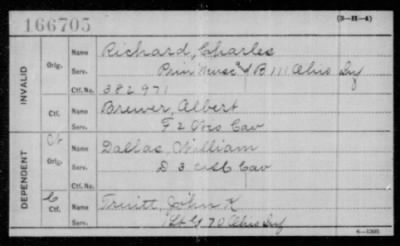 166705
(3-H-4)
INVALID
Orig.
Name Richard, Charles
Serv. Prin Musc'n B 111 Ohio Inf
Ctf. No. 382971
Ctf.
Name Brewer, Albert
Serv. F 2 Cav
DEPENDENT
Orig.
Name Dallas, William
Serv. D 3 Cav
Ctf. No.
Ctf.
Name Truitt, John K
Serv. G 70 Ohio Inf